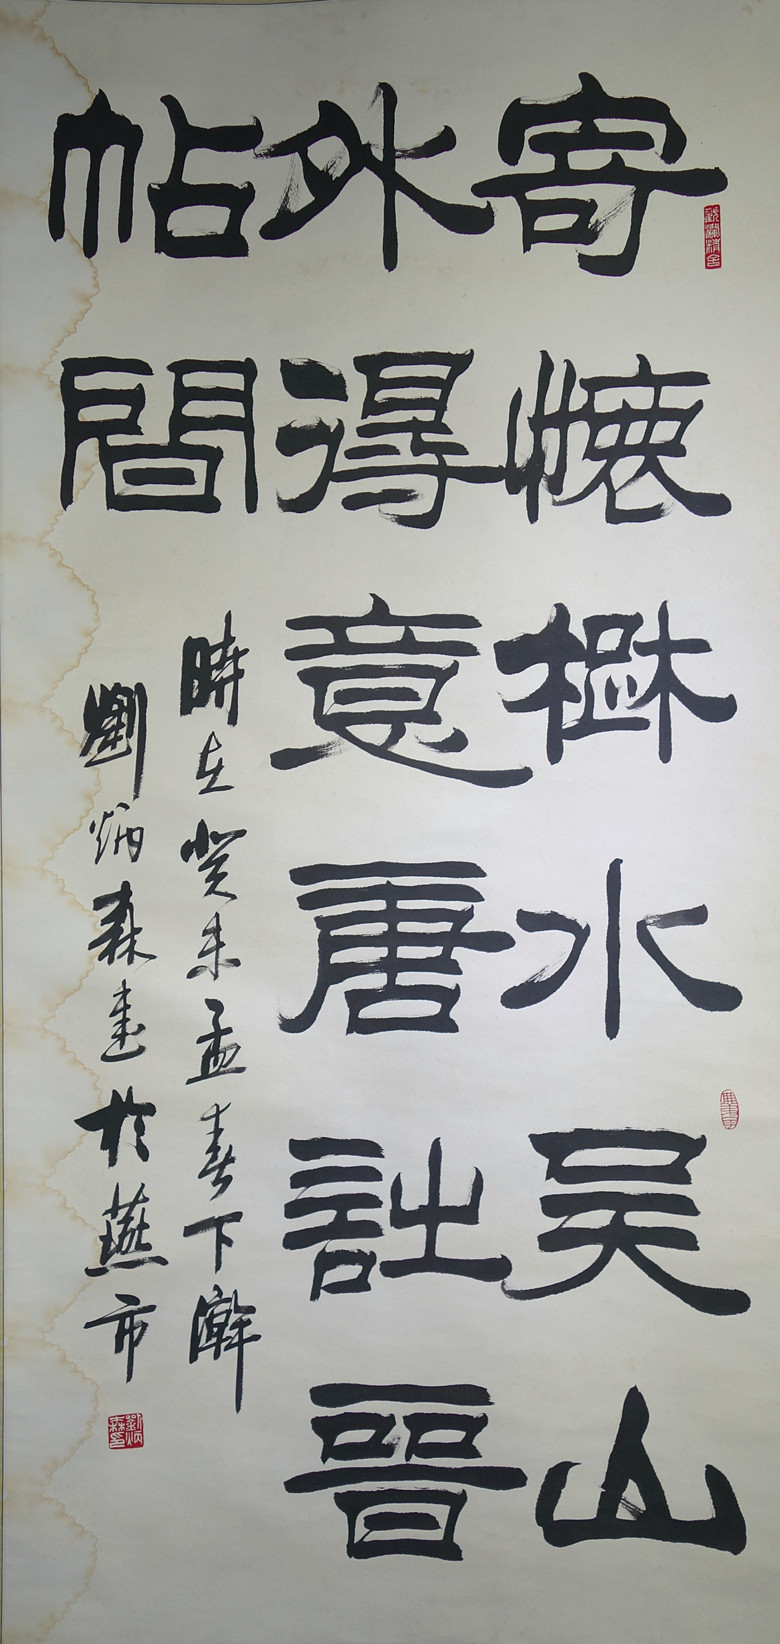 寄懷楚水吳山
外得意唐詩晉
帖間
時在癸未孟春下澣
劉炳森書於燕市
劉炳森印